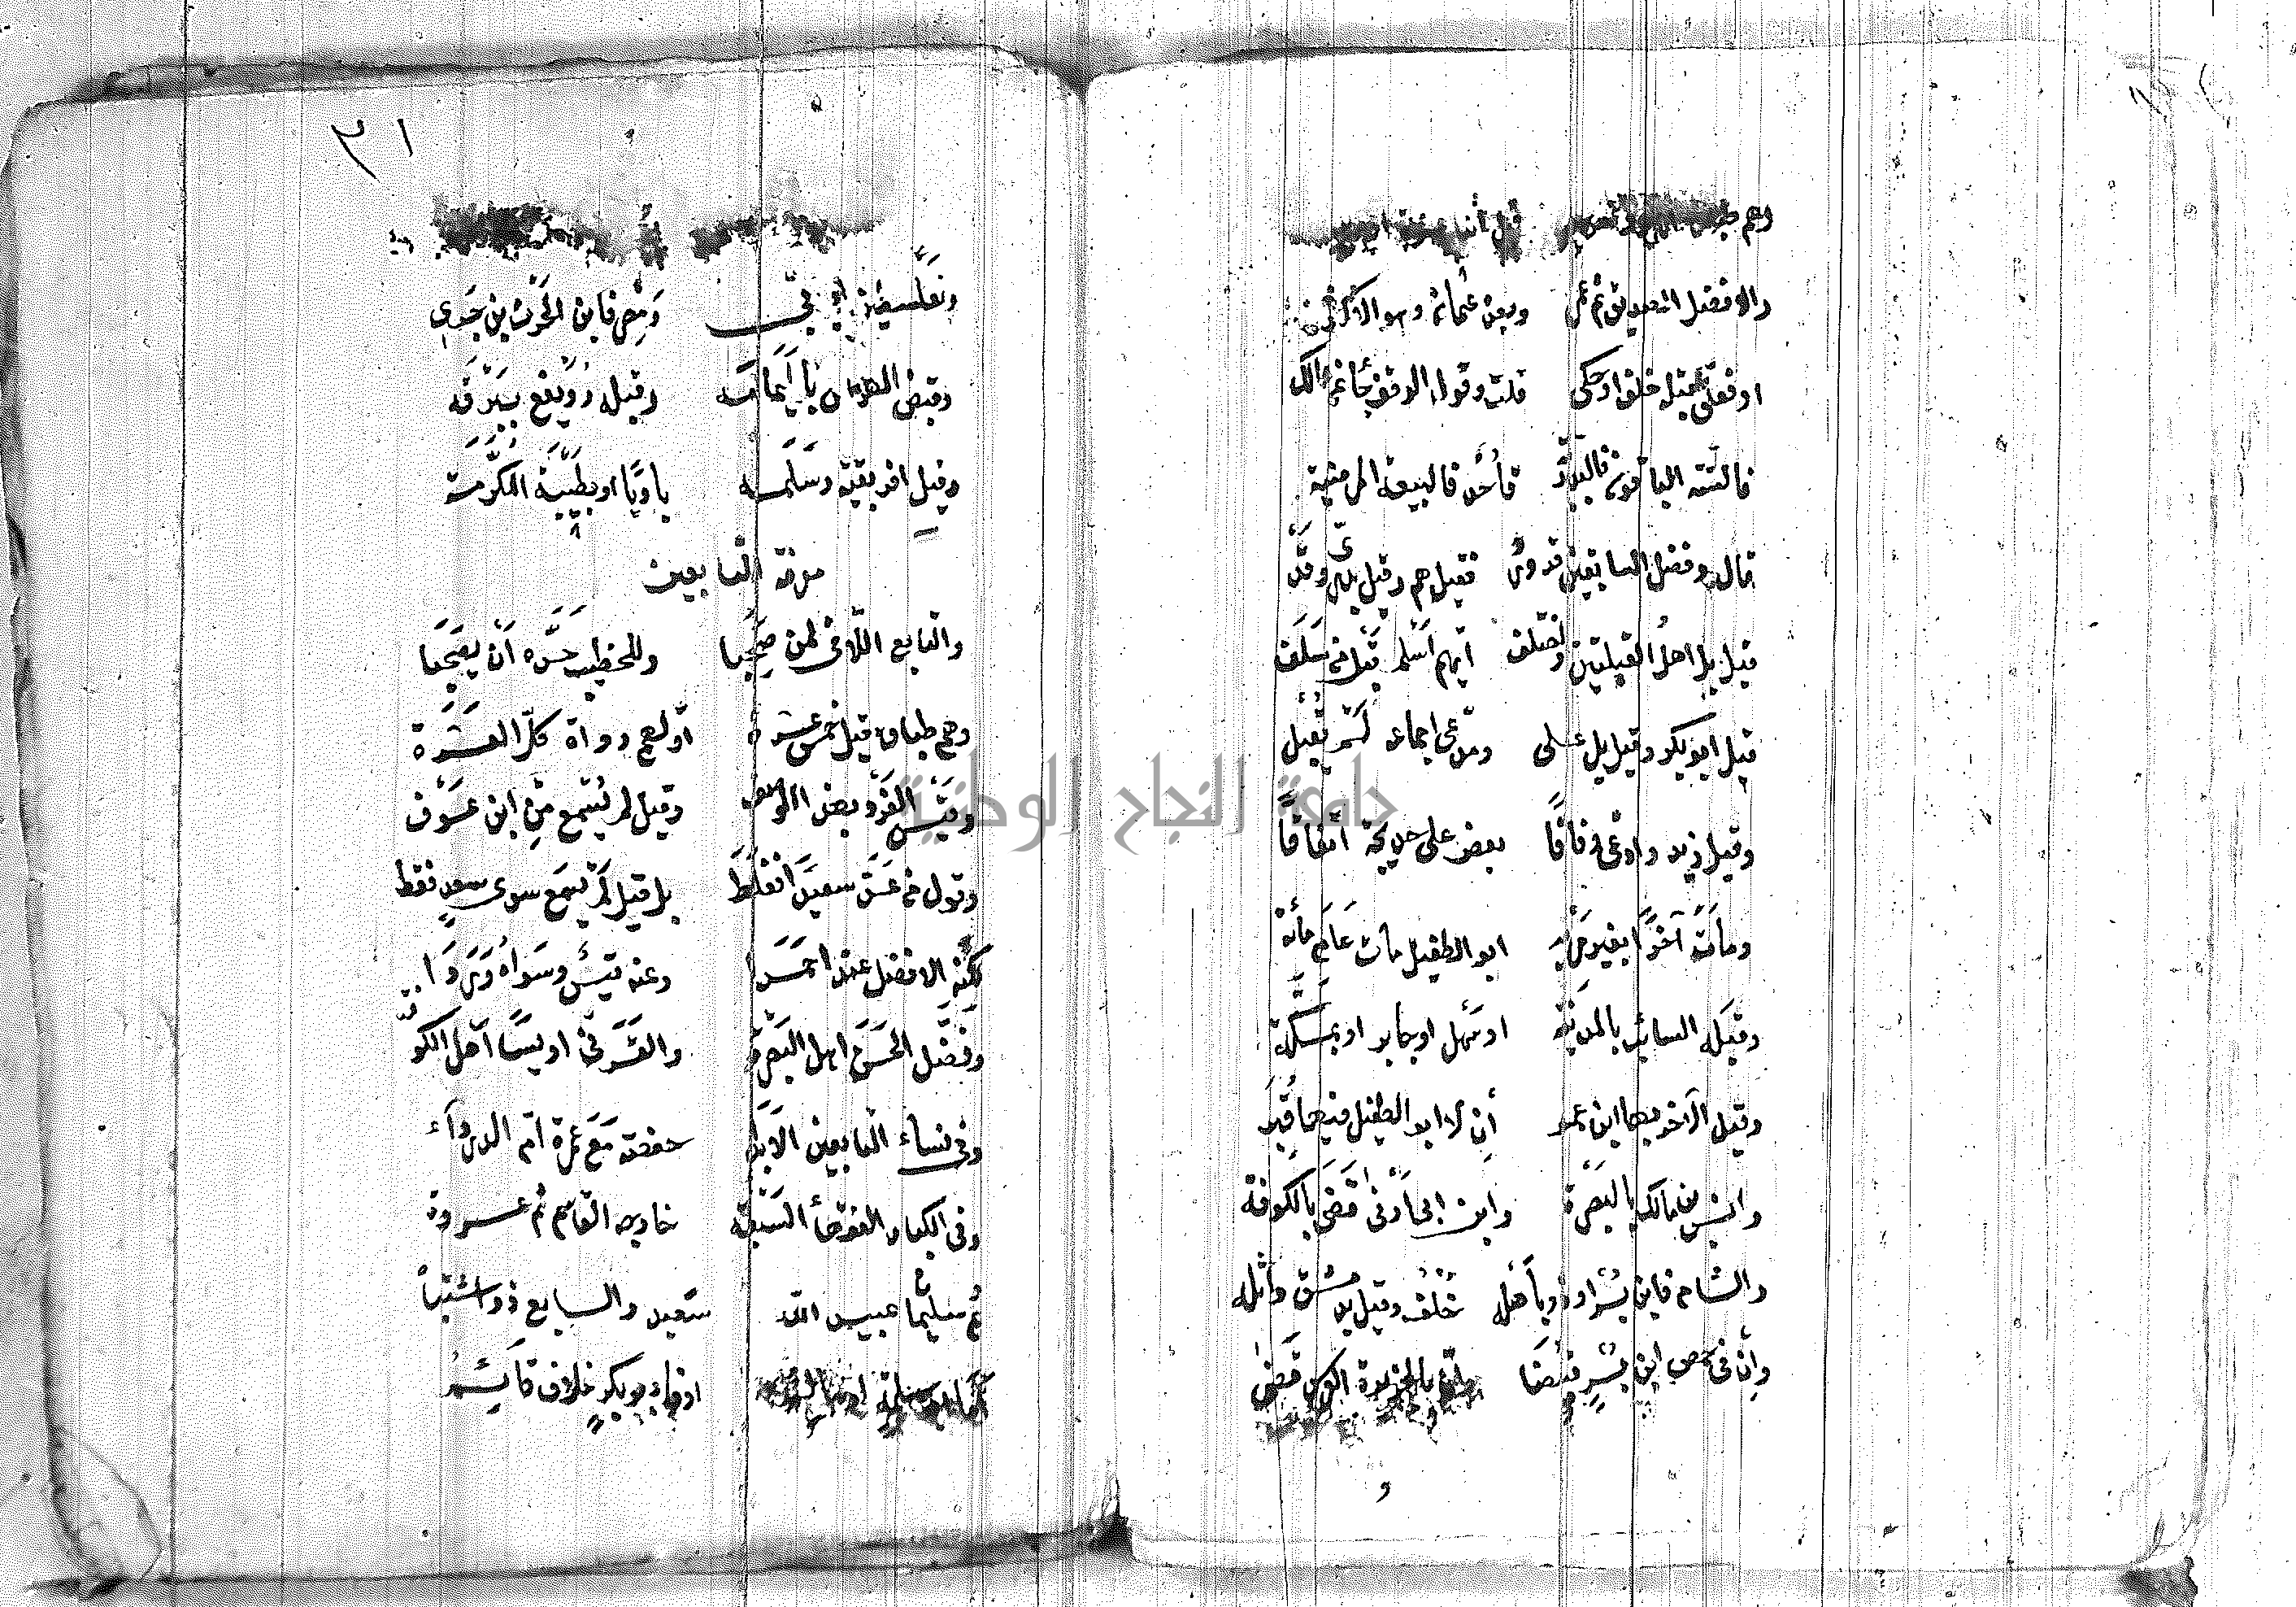 وهم طباق قيل اثنتا عشرة او
والافضل الصديق ثم عمر وبعده عثمان وهو الاكثر
او فعلي قبله خلف اوحكي قلت وقول الوقف جا عن مالك
فالستة الباقون فالبدرية فأحد فالبيعة المرضية
قال وفضل السابقين قد ورد فقيل هم وقيل بدري وقد
قيل بل اهل القبلتين واختلف ايهم اسلم قبل من سلف
قيل ابو بكر وقيل بل علي ومدعي اجماعه لم يقبل
وقيل زيد وادعى وفاقا بعض على خديجة اتفاقا
ومات آخرا بغير مرية ابو الطفيل مات عام مائة
وقبله السائب بالمدينة او سهل او جابر او بمكة
وقيل الآخر بها ابن عمر ان لا ابو الطفيل فيها قبر
وانس بن مالك بالبصرة وابن ابي اوفى قضى بالكوفة
والشام فابن بسر او ذو باهله خلف وقيل بدمشق واثله
وان في حمص ابن بسر قبضا وان بالجزيرة العرس قضى
٢١
وبفلسطين ابو ابي ومصر فابن الحرث بن جزي
وقبض الهرماس باليمامة وقبله رويفع ببرقة
وقيل افريقية وسلمه باديا او بطيبة المكرمة
معرفة التابعين
والتابع اللاقي لمن صحبا وللخطيب حده ان يصحبا
وهم طباق قيل خمس عشرة اولهم رواة كل العشرة
وقيس الفرد بهذا الوصف وقيل لم يسمع من ابن عوف
وقول من عد سعيدا فغلط بل قيل لم يسمع سوى سعد فقط
لكنه الافضل عند احمدا وعنه قيس وسواه وردا
وفضل الحسن اهل البصرة والقرني اويسا اهل الكوفة
وفي نساء التابعين الابدا حفصة مع عمرة ام الدرداء
وفي الكبار الفقهاء السبعة خارجة القاسم ثم عروة
ثم سليمان عبيد الله سعيد والسابع ذو اشتباه
اما ابو سلمة او سالم او فابو بكر خلاف قائم
جامعة النجاح الوطنية